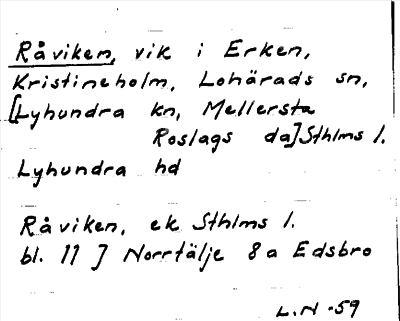 Råviken, vik i Erken,
Kristineholm, Lohärads sn,
[Lyhundra kn, Mellersta
Roslags da] Sthlms l.
Lyhundra hd
Råviken, ek Sthlms l.
bl. 11 J Norrtälje 8a Edsbro
L.N -59